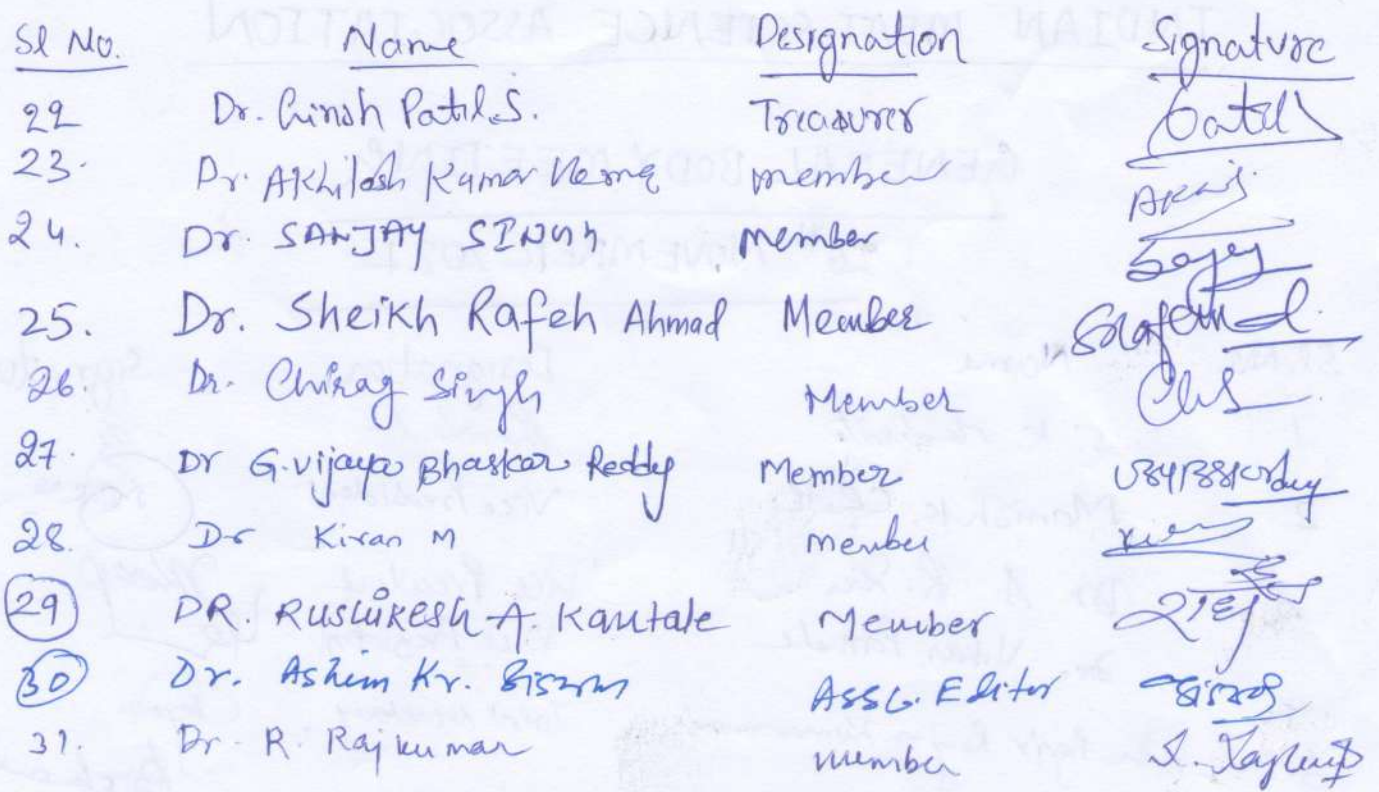 Sl No. Name Designation Signature
22 Dr. Girish Patil.S. Treasurer Patil
23. Dr. Akhilesh Kumar Verma member
24. Dr. SANJAY SINGH Member Sanjay
25. Dr. Sheikh Rafeh Ahmad Member
26. Dr. Chirag Singh Member ChS
27. Dr G.vijaya Bhaskar Reddy Member
28. Dr Kiran M member
29 DR. RUSHIKESH.A. Kantale Member
30 Dr. Ashim Kr. Biswas Editor Biswas
31. Dr. R. Rajkumar member R. Rajkumar